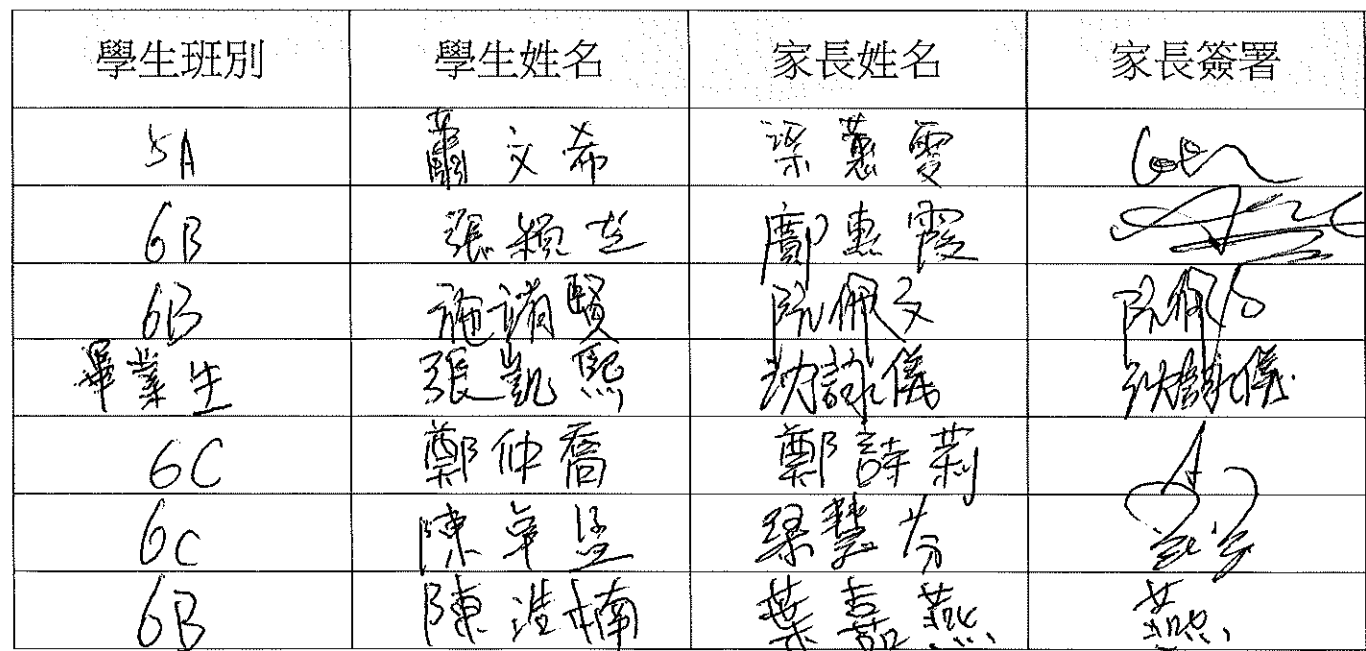 學生班別 學生姓名 家長姓名 家長簽署
5A 蕭文希 梁蕙雯
6B 張穎芝 鄺惠霞
6B 施靖賢 阮佩文 阮佩文
畢業生 張凱熙 沈詠儀 沈詠儀
6C 鄭仲喬 鄭詩莉
6C 陳卓昱 梁慧芬
6B 陳浩楠 葉嘉燕 燕